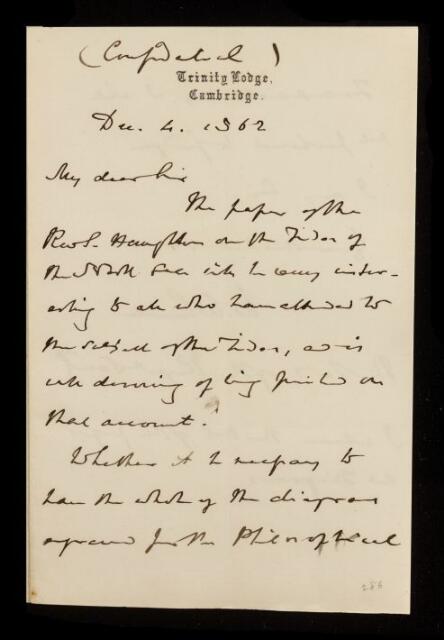 (Confidential)
Trinity Lodge,
Cambridge.
Dec. 4. 1862
My dear Sir
The paper of the
Revd. Haughton on the Tides of
the North Seas will be very inter-
esting to all who have attended to
the subject of the Tides, and is
well deserving of being printed on
that account.
Whether it be necessary to
have the whole of the diagrams
engraved for the Philosophical
286